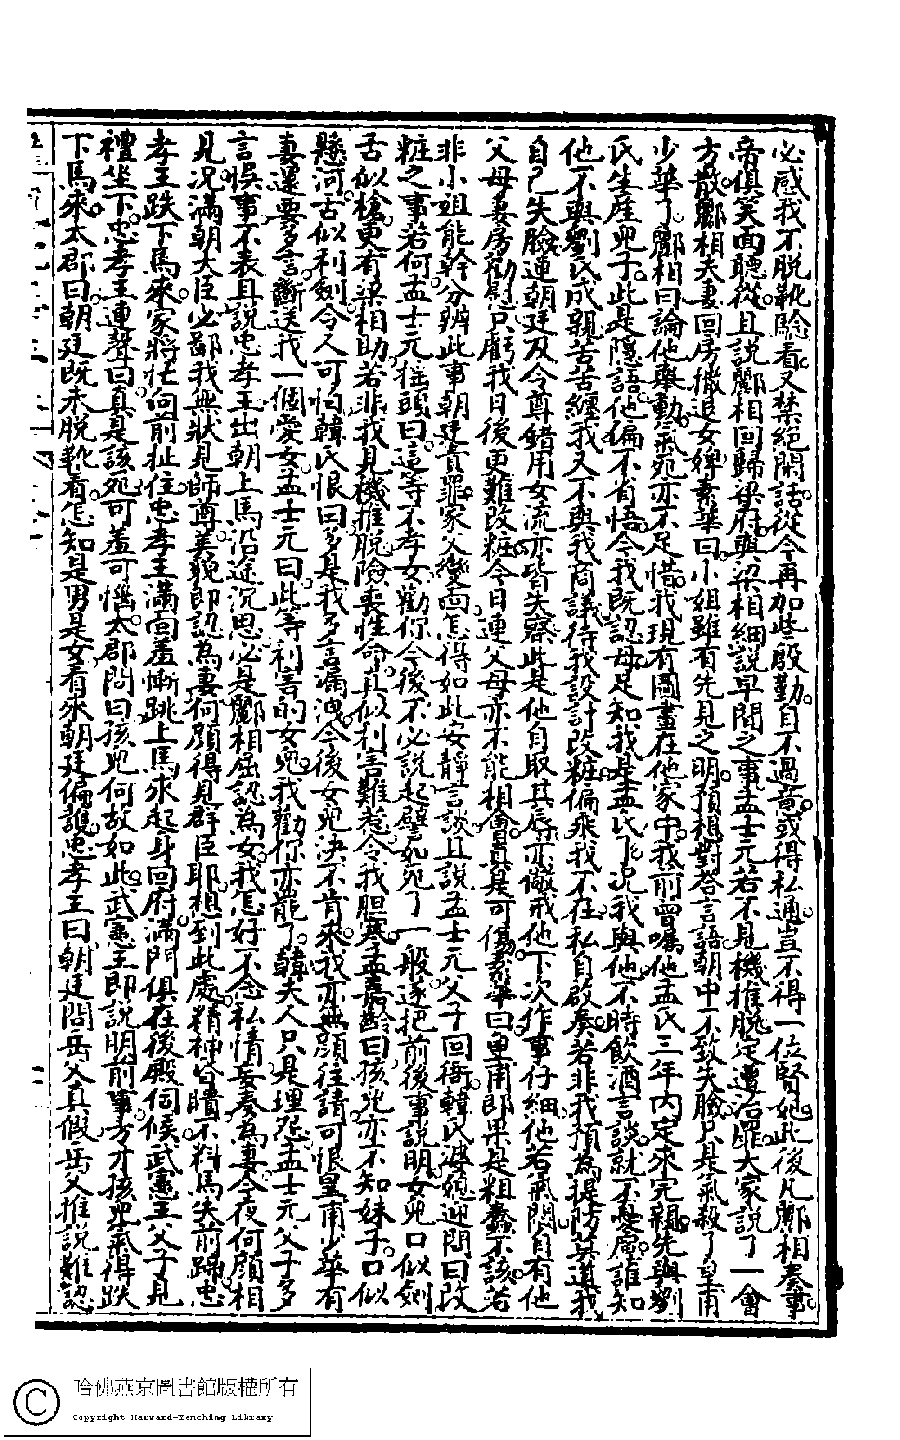 必感我不脫靴驗看又禁絕閑話從今再加些殷勤自不過意或得私通豈不得一位賢妃此後凡鄺相奏事
帝俱笑面聽從且說鄺相回歸梁府與梁相細說早間之事孟士元若不見機推脫定遭治罪大家說了一會
方散鄺相夫妻回房撤退女婢素華曰小姐雖有先見之明預想對答言語朝中不致失臉只是氣殺了皇甫
少華了鄺相曰論他舉動氣死亦不足惜我現有圖畫在他家中我前曾囑他孟氏三年內定來完親先與劉
氏生產兒子此是隱語他偏不省悟今我既認母足知我是孟氏了況我與他不時飲酒言談就不憂慮誰知
他不與劉氏成親苦苦纏我又不與我商議待我設計改粧偏乘我不在私自啟奏若非我預為提防莫道我
自己失臉連朝廷及令尊錯用女流亦皆失察此是他自取其辱亦儆戒他下次作事仔細他若氣悶自有他
父母妻房勸慰只虧我日後更難改粧今日連父母亦不能相會真是可傷素華曰皇甫郎果是粗蠢不該若
非小姐能幹分辨此事朝廷責罪家父變面怎得如此安靜言談且說孟士元父子回衙韓氏婆媳迎問曰改
粧之事若何孟士元搖頭曰這等不孝女勸你今後不必說起譬如死了一般遂把前後事說明女兒口似劍
舌似槍更有梁相助若非我見機推脫險喪性命真似利害難惹令我胆寒孟嘉齡曰孩兒亦不知妹子口似
懸河舌似利劍令人可怕韓氏恨曰多是我多言漏洩今後女兒決不肯來我亦無顏往請可恨皇甫少華有
妻還要多言斷送我一個愛女孟士元曰此等利害的女兒我勸你亦罷了韓夫人只是埋怨孟士元父子多
言悞事不表且說忠孝王出朝上馬沿途沉思必是鄺相屈認為女我怎好不念私情妄奏為妻今夜何顏相
見況滿朝大臣必鄙我無狀見師尊美貌即認為妻何顏得見群臣耶想到此處精神昏瞶不料馬失前蹄忠
孝王跌下馬來家將忙向前扯住忠孝王滿面羞慚跳上馬來起身回府滿門俱在後殿伺候武憲王父子見
禮坐下忠孝王連聲曰真是該死可羞可惱太郡問曰孩兒何故如此武憲王即說明前事方才孩兒氣得跌
下馬來太郡曰朝廷既未脫靴看怎知是男是女看來朝廷偏護忠孝王曰朝廷問岳父真假岳父推說難認
哈佛燕京圖書館版權所有
Copyright Harvard-Yenching Library